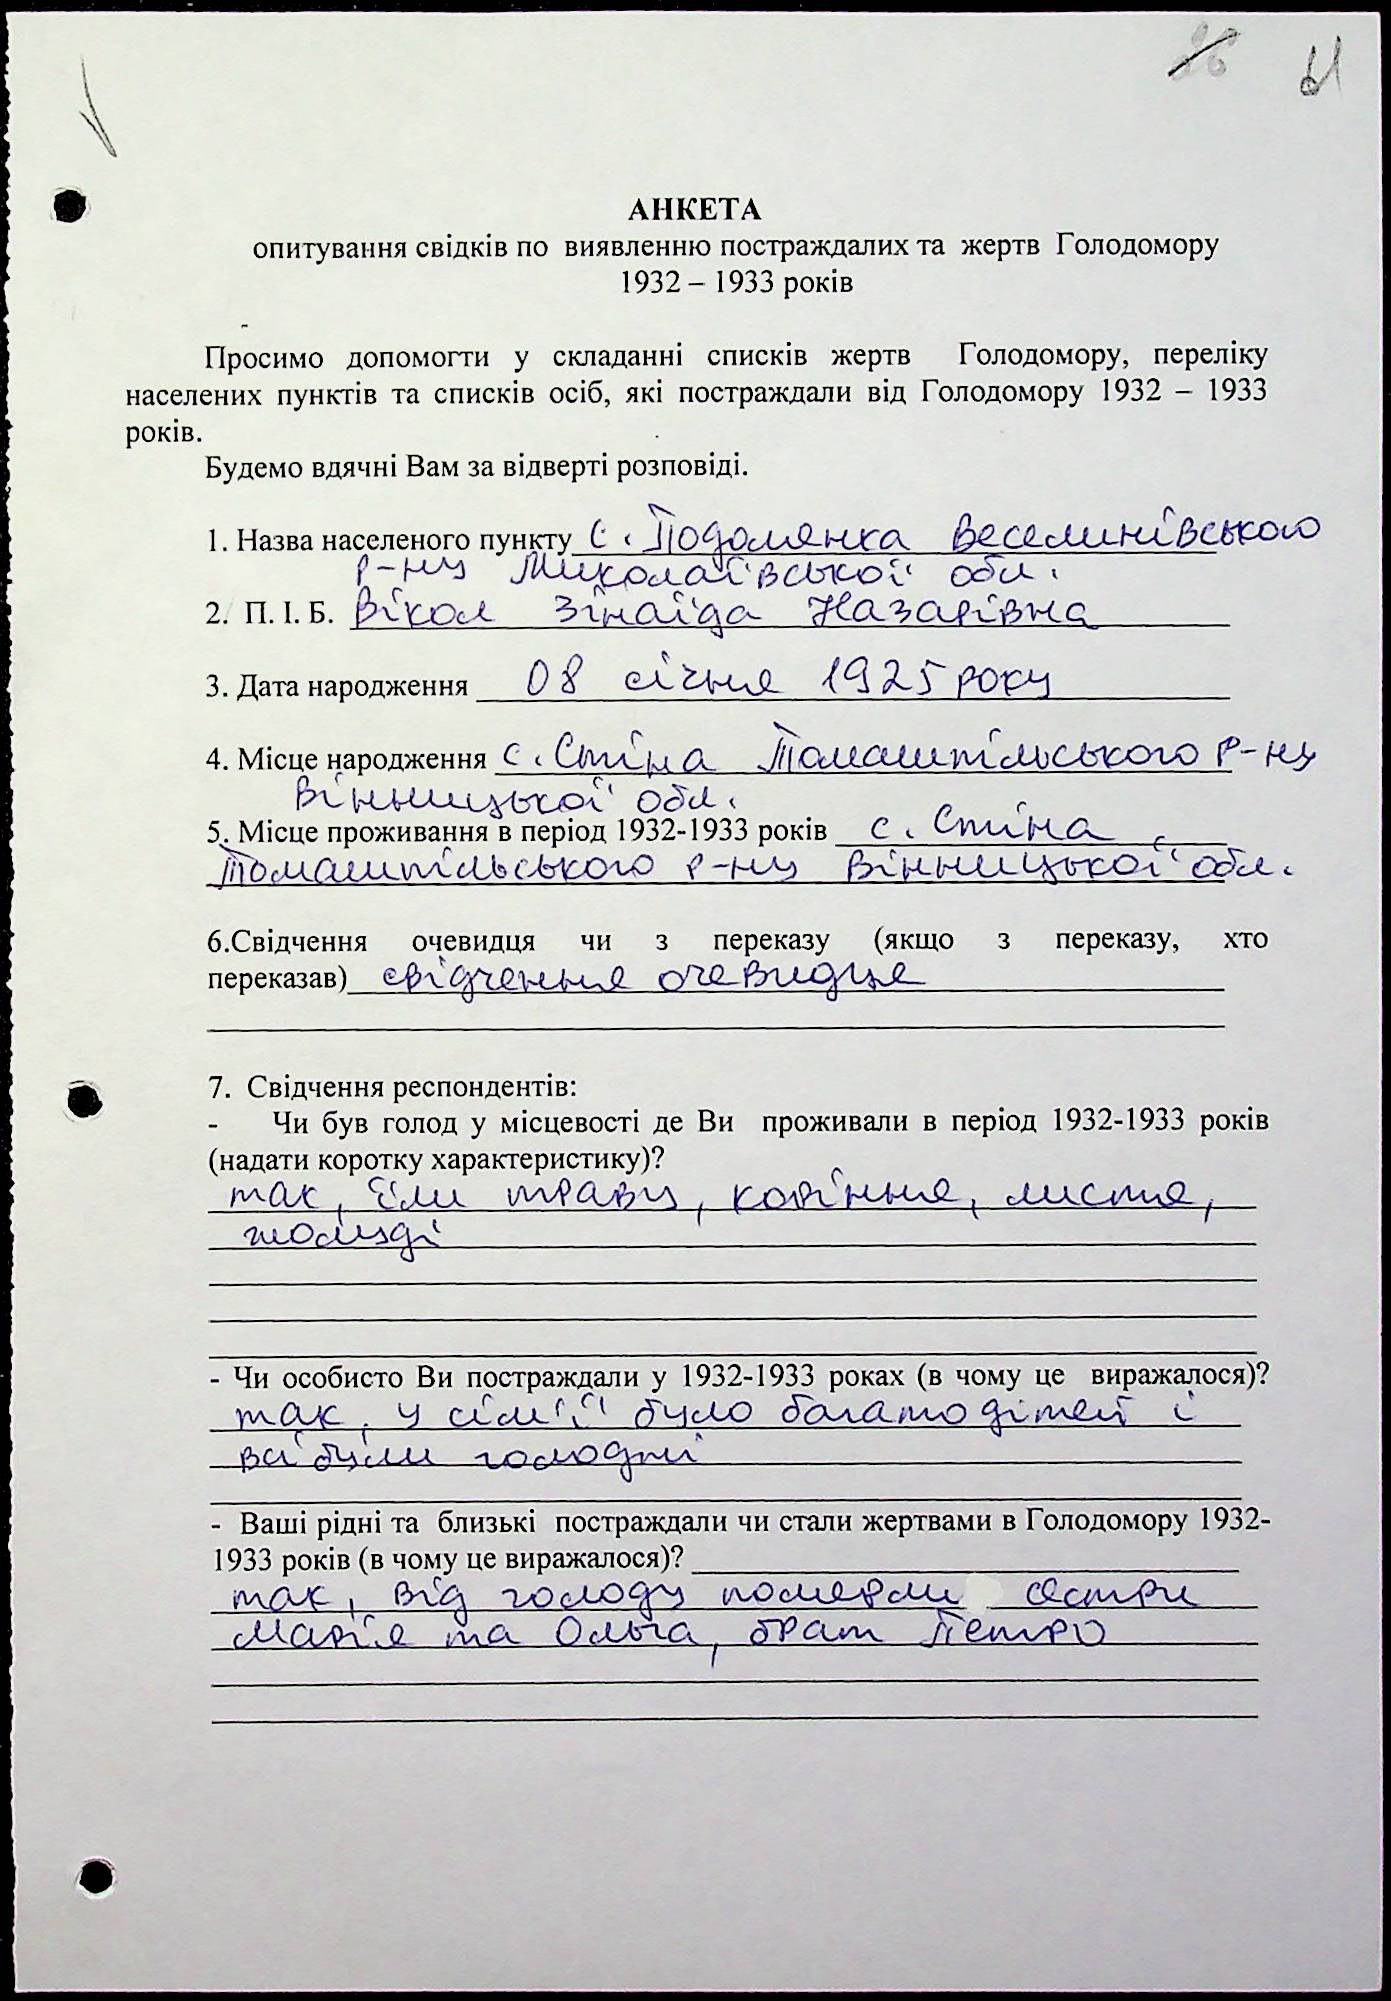 61
АНКЕТА
опитування свідків по виявленню постраждалих та жертв Голодомору
1932 – 1933 років
Просимо допомогти у складанні списків жертв Голодомору, переліку
населених пунктів та списків осіб, які постраждали від Голодомору 1932 – 1933
років.
Будемо вдячні Вам за відверті розповіді.
1. Назва населеного пункту с. Подолянка Веселинівського
р-ну Миколаївської обл.
2. П. І. Б. Вікол Зінаїда Назарівна
3. Дата народження 08 січня 1925 року
4. Місце народження с. Стіна Томашпільського р-ну
Вінницької обл.
5. Місце проживання в період 1932-1933 років с. Стіна
Томашпільського р-ну Вінницької обл.
6.Свідчення очевидця чи з переказу (якщо з переказу, хто
переказав) свідчення очевидця
7. Свідчення респондентів:
- Чи був голод у місцевості де Ви проживали в період 1932-1933 років
(надати коротку характеристику)?
так, їли траву, коріння, листя,
жолуді
- Чи особисто Ви постраждали у 1932-1933 роках (в чому це виражалося)?
так, у сім'ї було багато дітей і
всі були голодні
- Ваші рідні та близькі постраждали чи стали жертвами в Голодомору 1932-
1933 років (в чому це виражалося)?
так, від голоду померли сестри
Марія та Ольга, брат Петро